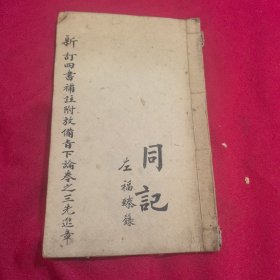 同記
左福臻錄
新訂四書補註附攷備旨下論卷之三先進章